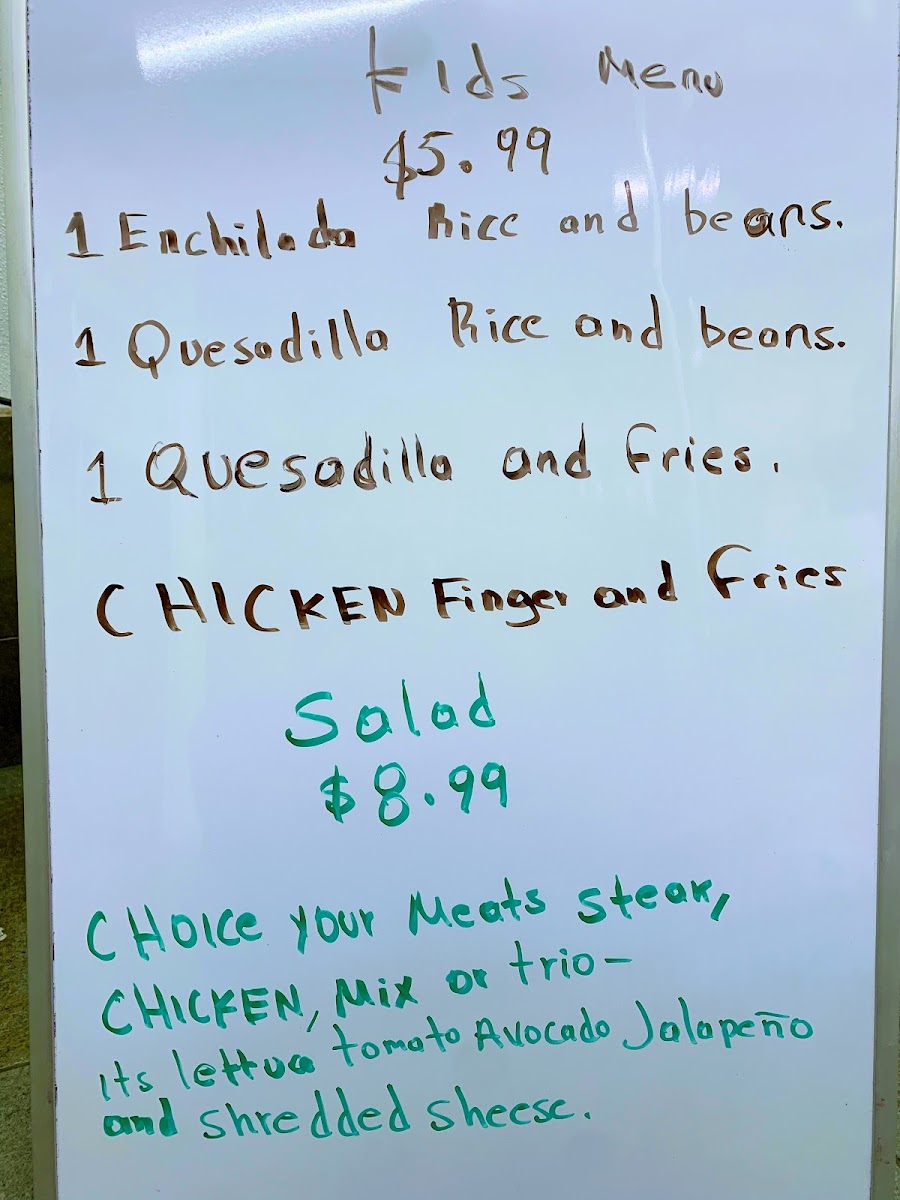 Kids Menu
$5.99
1 Enchilada Rice and beans.
1 Quesadilla Rice and beans.
1 Quesadilla and fries.
CHICKEN Finger and fries
Salad
$8.99
CHOICE your Meats steak,
CHICKEN, Mix or trio-
its lettuce tomato Avocado Jalapeño
and shredded sheese.